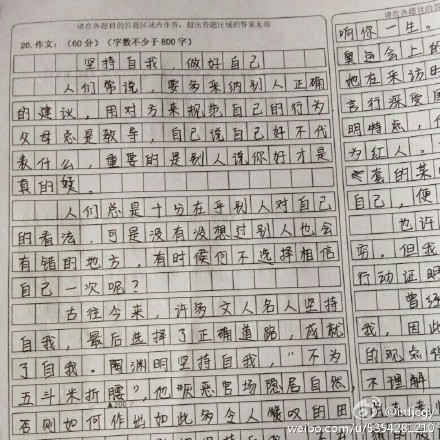 请在各题目的答题区域内作答，超出答题区域的答案无效
20.作文：（60分）（字数不少于800字）
坚持自我，做好自己
人们常说，要多采纳别人正确
的建议，用对方来规范自己的行为
父母总是教导，自己说自己好不代
表什么，重要的是别人说你好才是
真的好。
人们总是十分在乎别人对自己
的看法，可是没有没想过别人也会
有错的地方，有时候何不选择相信
自己一次呢？
古往今来，许多文人名人坚持
自我，最后选择了正确道路，成就
了自我。陶渊明坚持自我，"不为
五斗米折腰"，他厌恶官场隐居自然，
否则如何作出如此多令人赞叹的田
▲200
请在各题目的答题
响你一生。
奥运会上的
她在采访时
言行深受
明特点，
为红人。
套的某
自己，便
也许
穷，但我
行动证明
曾经
我，因此
的观点
不理解
weibo.com/u/535428210